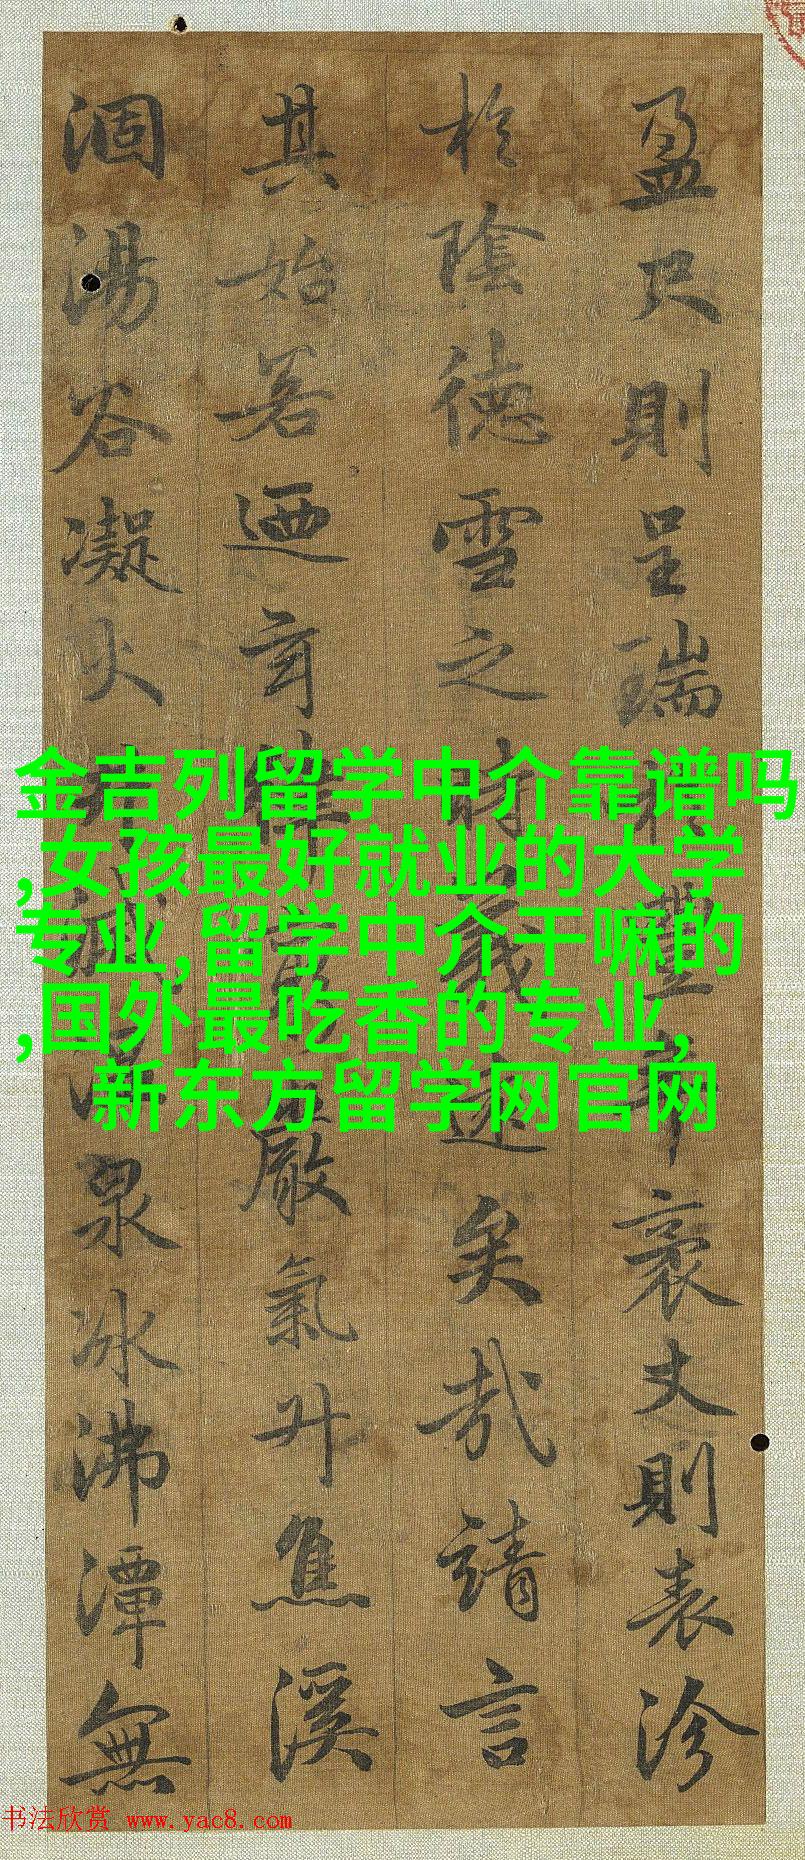 盈尺則呈瑞豐年袤丈則表沴
於陰德雪之時義遠矣哉請言
其始若迺玄律嚴氣升焦溪
涸湯谷凝火泉冰沸潭無
金吉列留学中介靠谱吗
,女孩最好就业的大学
专业,留学中介干嘛的
,国外最吃香的专业,
新东方留学网官网
书法欣赏 www.yac8.com